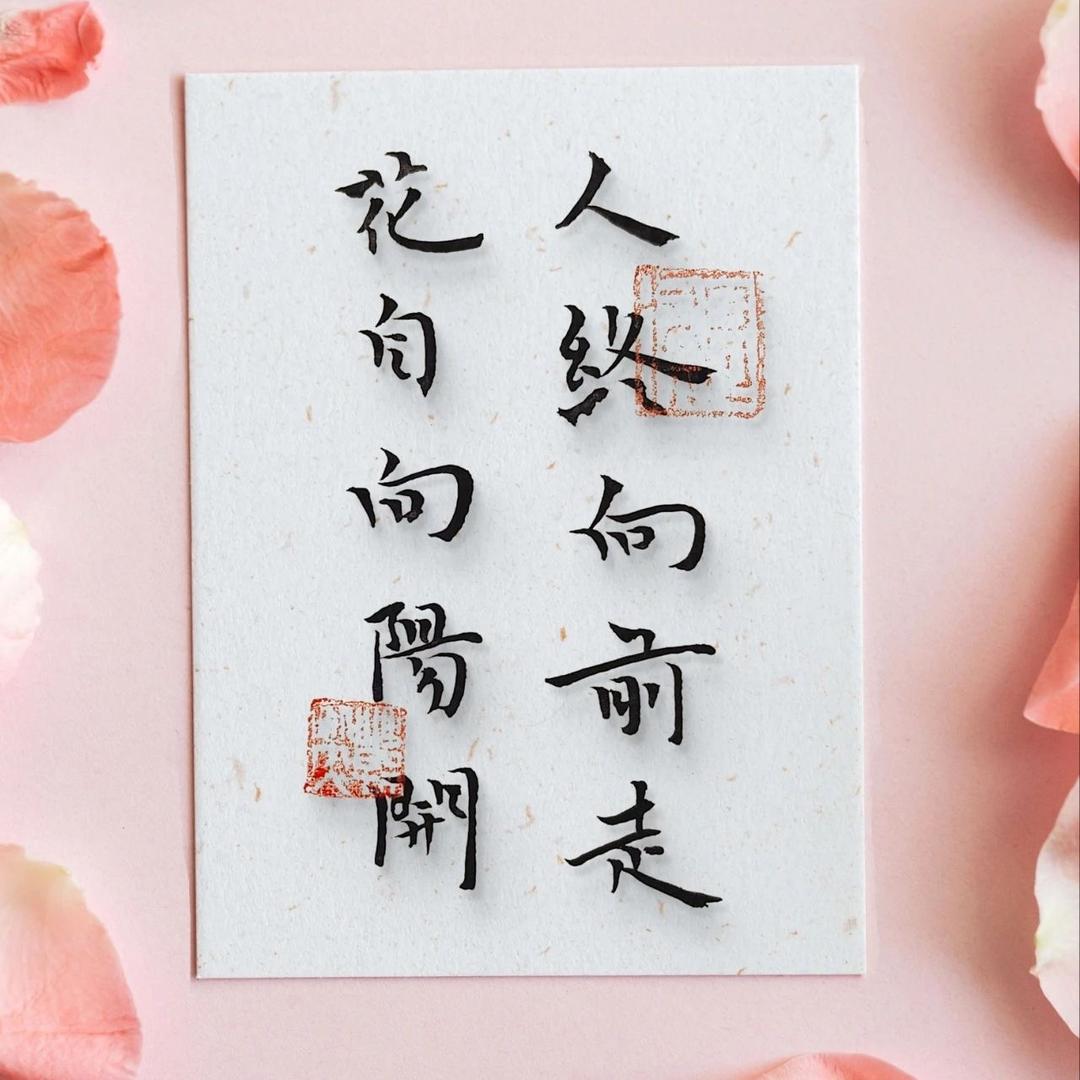 人終向前走
花自向陽開